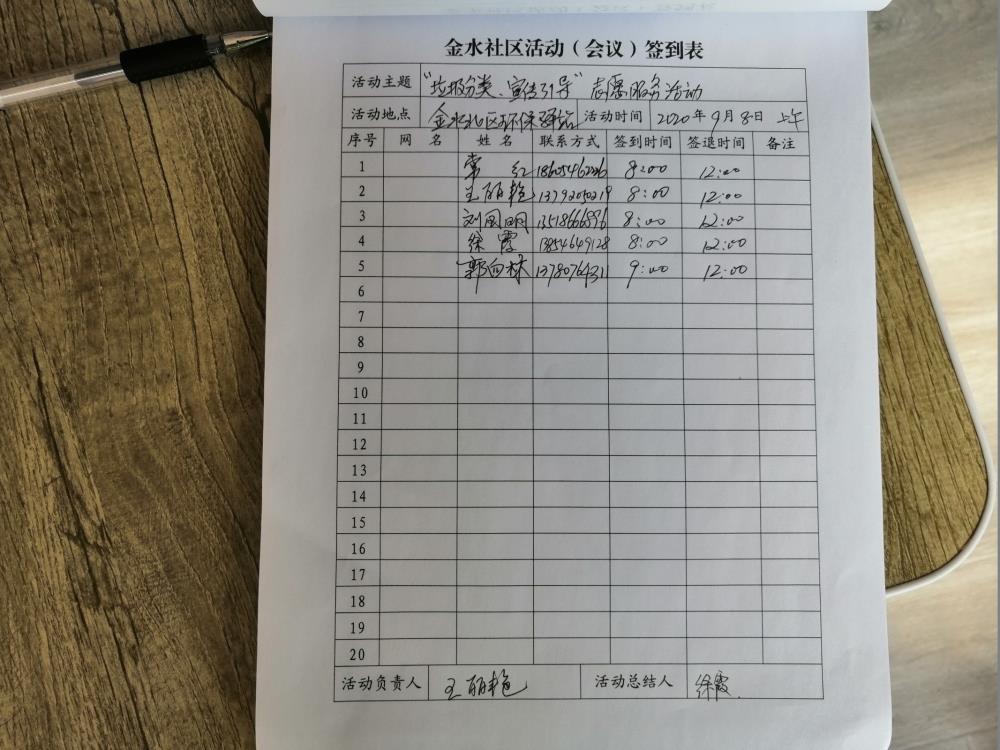 金水社区活动（会议）签到表
活动主题 “垃圾分类、宣传引导”志愿服务活动
活动地点 金水北区环保驿站 活动时间 2020年9月8日 上午
序号 网名 姓名 联系方式 签到时间 签退时间 备注
1 常红 8:00 12:00
2 王丽艳 8:00 12:00
3 刘凤明 13518666896 8:00 12:00
4 徐霞 13854649128 8:00 12:00
5 郭向林 13780764311 9:00 12:00
6
7
8
9
10
11
12
13
14
15
16
17
18
19
20
活动负责人 王丽艳 活动总结人 徐霞